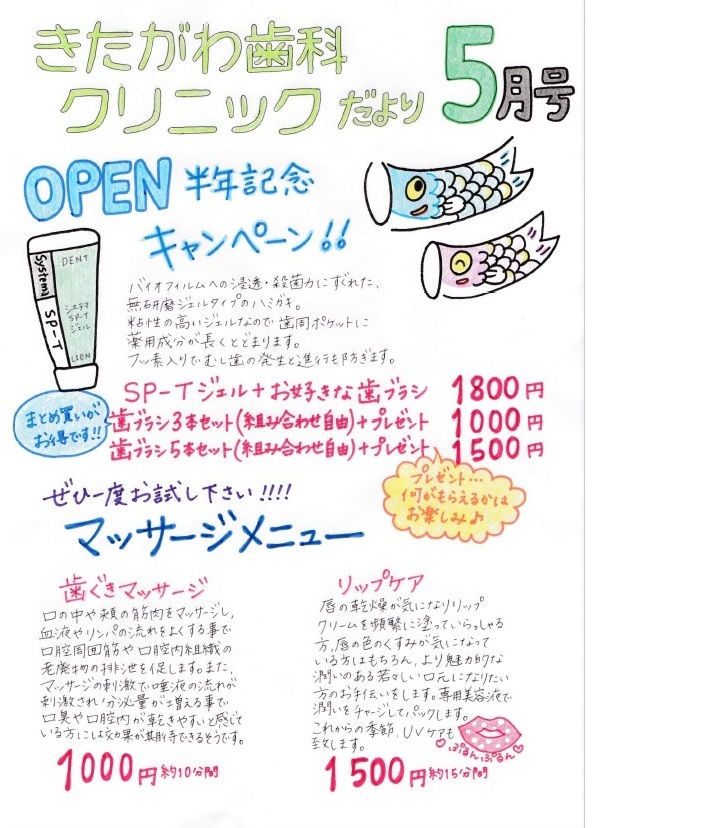 きたがわ歯科
クリニックだより
5月号
OPEN 半年記念
キャンペーン!!
Systema
SP-T
DENT
システマ
SP-T
ジェル
LION
バイオフィルムへの浸透・殺菌力にすぐれた、
無研磨ジェルタイプのハミガキ。
粘性の高いジェルなので歯周ポケットに
薬用成分が長くとどまります。
フッ素入りでむし歯の発生と進行も防ぎます。
SP-Tジェル+お好きな歯ブラシ 1800円
まとめ買いが
お得です!!
歯ブラシ3本セット(組み合わせ自由)+プレゼント 1000円
歯ブラシ5本セット(組み合わせ自由)+プレゼント 1500円
プレゼント…
何がもらえるかは
お楽しみ♪
ぜひ一度お試し下さい!!!!
マッサージメニュー
歯ぐきマッサージ
口の中や頬の筋肉をマッサージし、
血液やリンパの流れをよくする事で
口腔周囲筋や口腔内組織の
老廃物の排泄を促します。また、
マッサージの刺激で唾液の流れが
刺激され分泌量が増える事で
口臭や口腔内が乾きやすいと感じて
いる方には効果が期待できるそうです。
1000円 約10分間
リップケア
唇の乾燥が気になりリップ
クリームを頻繁に塗っていらっしゃる
方、唇の色のくすみが気になって
いる方はもちろん、より魅力的な
潤いのある若々しい口元になりたい
方のお手伝いをします。専用美容液で
潤いをチャージしてパックします。
これからの季節、UVケアも
致します。
ぷるんぷるん
1500円 約15分間